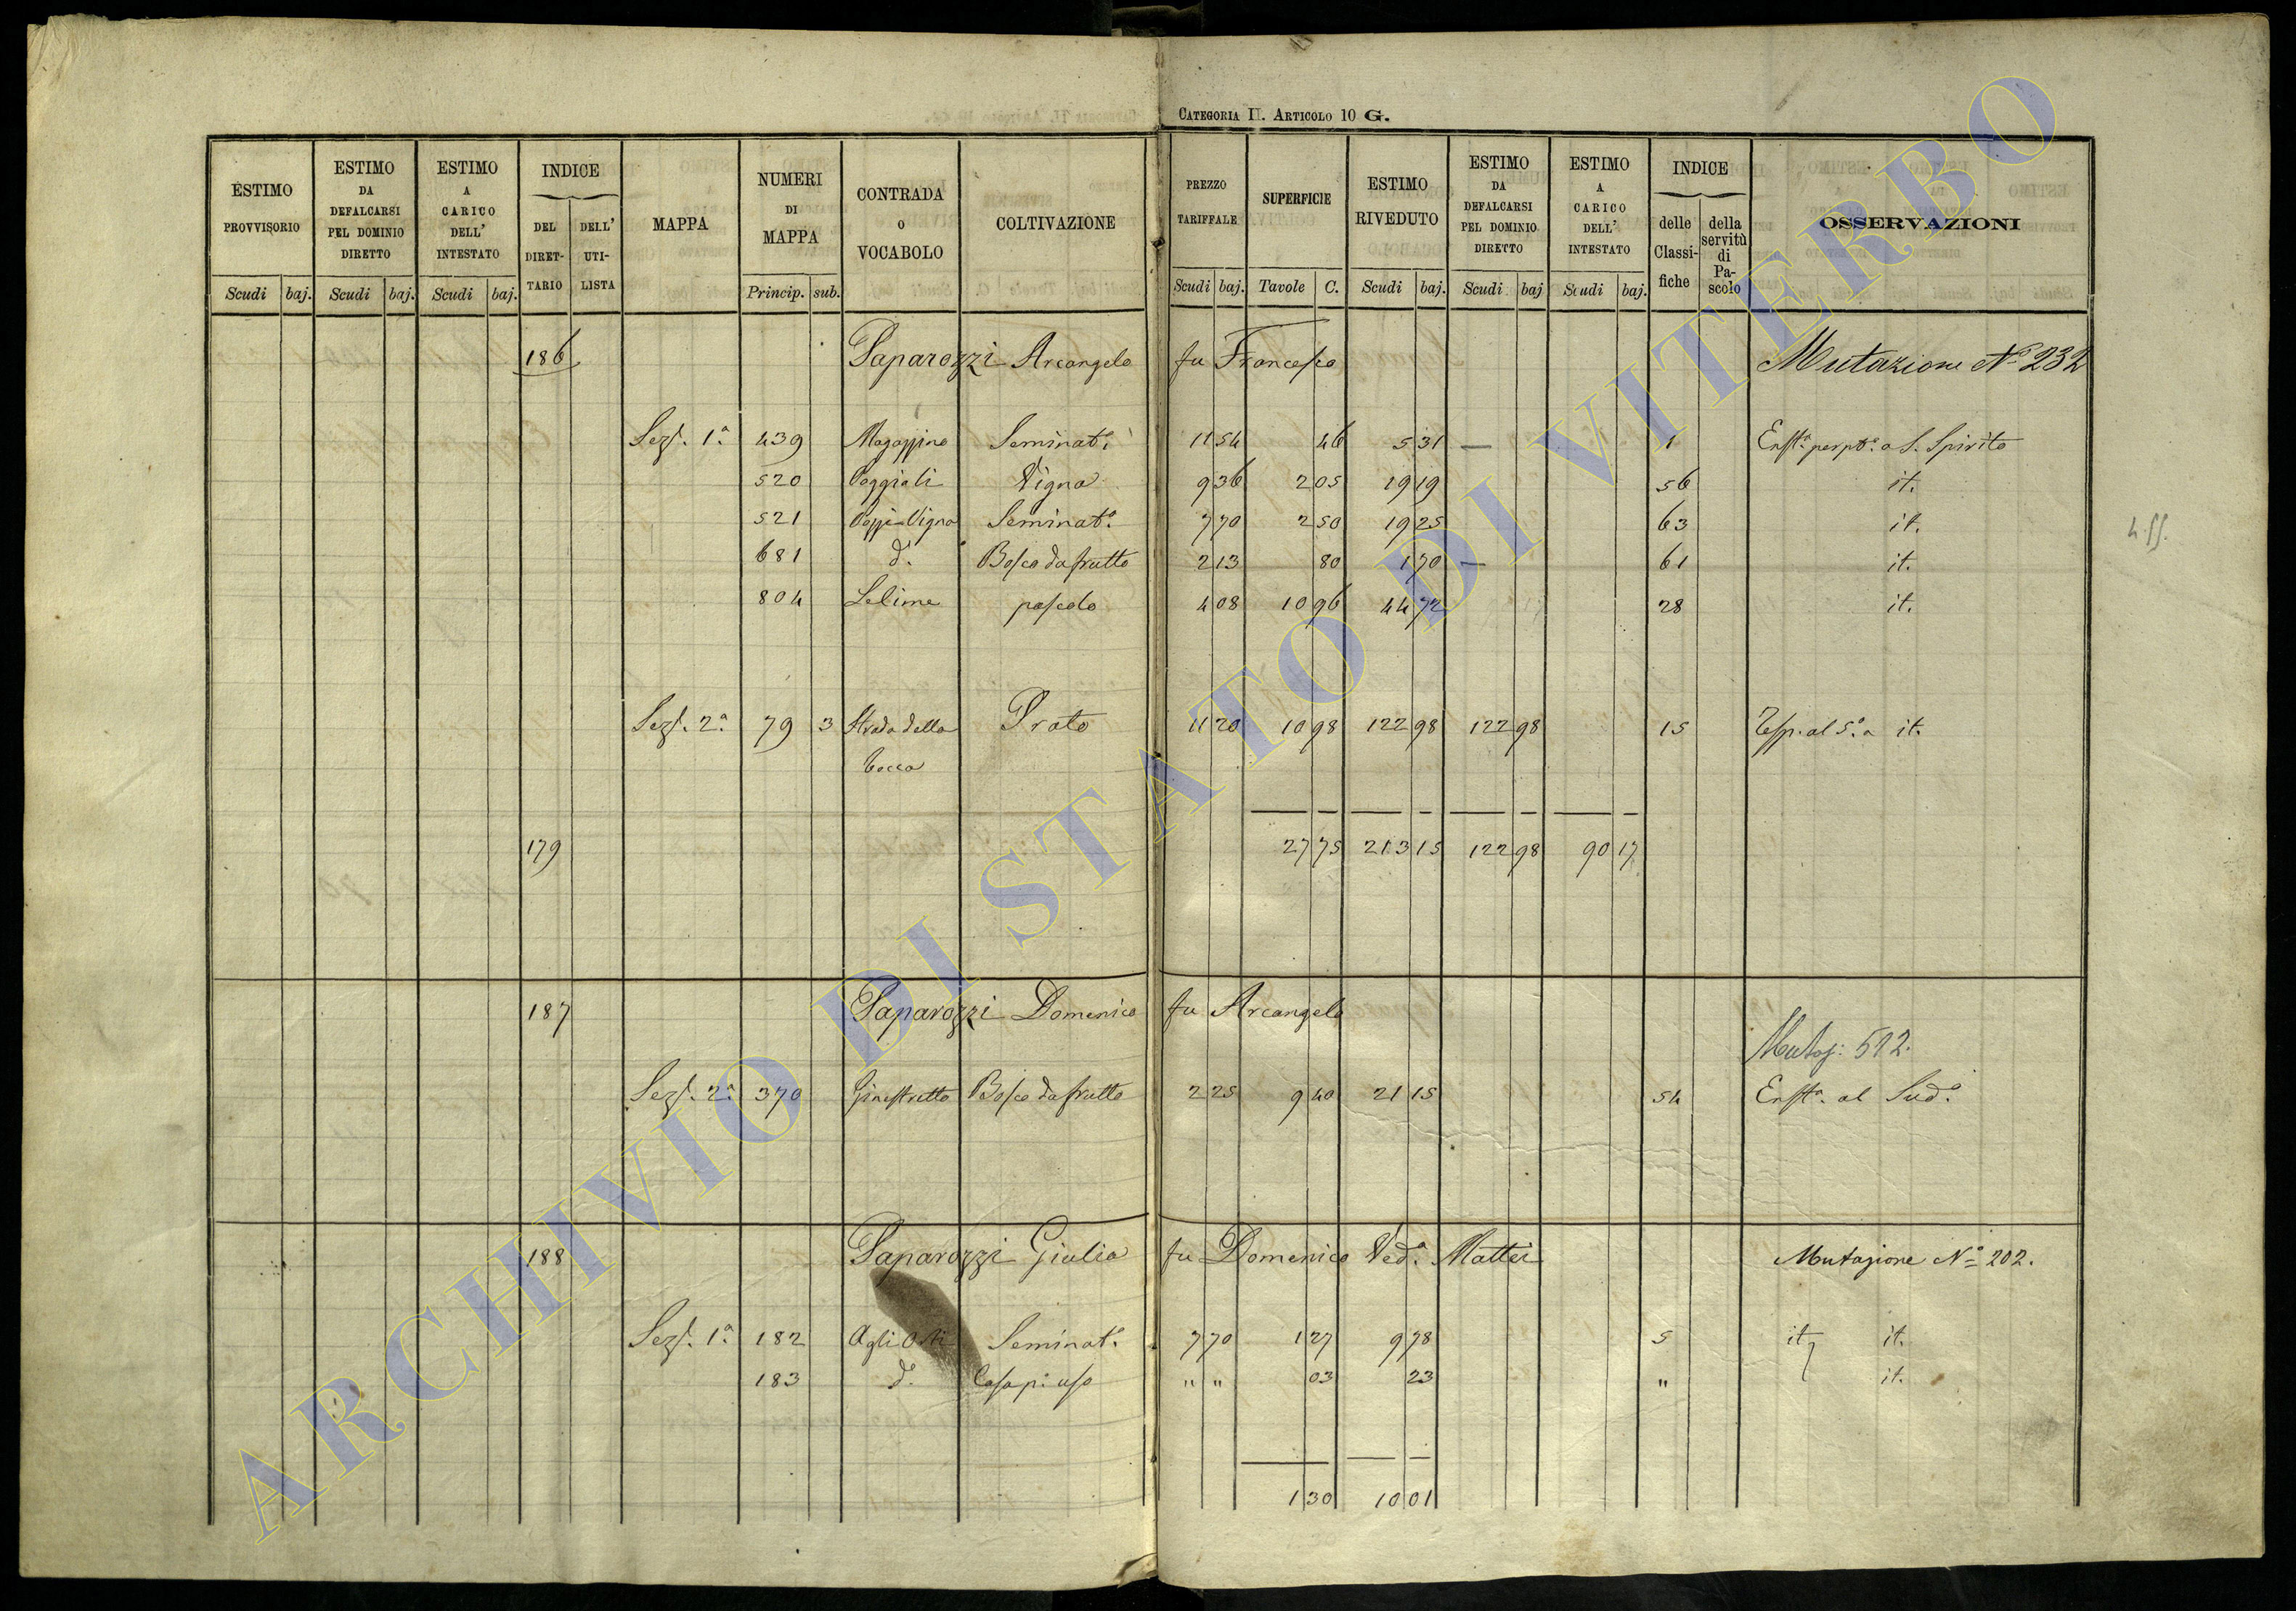 CATEGORIA II. ARTICOLO 10 G.
ESTIMO PROVVISORIO Scudi baj. ESTIMO DA DEFALCARSI PEL DOMINIO DIRETTO Scudi baj. ESTIMO A CARICO DELL' INTESTATO Scudi baj. INDICE DEL DIRET- TARIO DELL' UTI- LISTA MAPPA NUMERI DI MAPPA Princip. sub. CONTRADA O VOCABOLO COLTIVAZIONE PREZZO TARIFFALE Scudi baj. SUPERFICIE Tavole C. ESTIMO RIVEDUTO Scudi baj. ESTIMO DA DEFALCARSI PEL DOMINIO DIRETTO Scudi baj ESTIMO A CARICO DELL' INTESTATO Scudi baj. INDICE delle Classi- fiche della servitù di Pa- scolo OSSERVAZIONI
186 Paparozzi Arcangelo fu Francesco Mutazione N° 232
Sez. 1ª 439 Seminat° 11 54 46 5 31 — 1 Enft. perpt. a S. Spirito
520 Poggioli Vigna 9 36 2 05 19 19 56 it.
521 Vigna Seminat° 7 70 2 50 19 25 63 it.
681 d° Bosco da frutto 2 13 80 1 70 — 61 it.
804 pascolo 4 08 10 96 44 72 28 it.
Sez. 2ª 79 3 Strada della Prato 11 20 10 98 122 98 122 98 15 al S. a it.
Rocca
179 27 75 213 15 122 98 90 17
187 Paparozzi Domenico fu Arcangelo
Mutaz: 512.
Sez. 2ª 370 Ginestretto Bosco da frutto 2 25 9 40 21 15 54 Enft. al Sud°
188 Paparozzi Giulia fu Domenico Ved. Mattei Mutazione N° 202.
Sez. 1ª 182 Agli Orti Seminat° 7 70 1 27 9 78 5 it. it.
183 d° Casa p: uso " " 03 23 " it.
1 30 10 01
ARCHIVIO DI STATO DI VITERBO